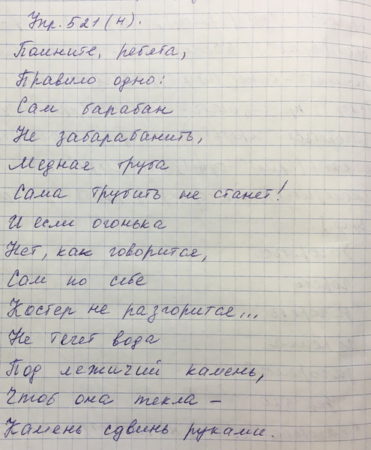 Упр. 521 (н).
Помните, ребята,
Правило одно:
Сам барабан
Не забарабанить,
Медная труба
Сама трубить не станет!
И если огонька
Нет, как говорится,
Сам по себе
Костер не разгорится...
Не течет вода
Под лежичий камень,
Чтоб она текла –
Камень сдвинь руками.